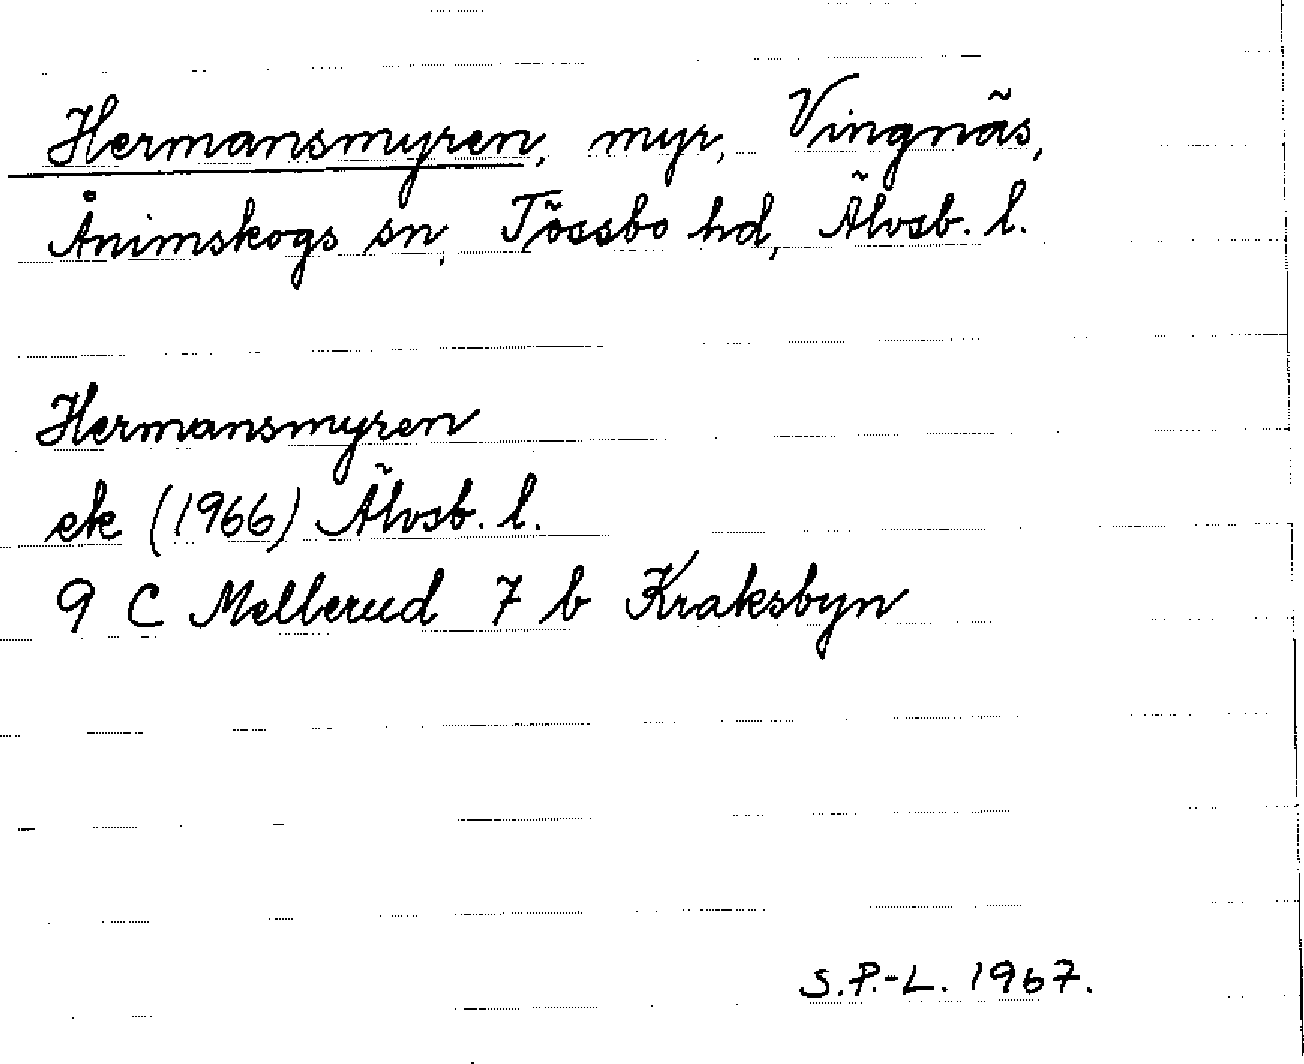 Hermansmyren, myr, Vingnäs,
Ånimskogs sn, Tössbo hd, Älvsb. l.
Hermansmyren
ek (1966) Älvsb. l.
9 C Mellerud 7 b Kraksbyn
S.P.-L. 1967.